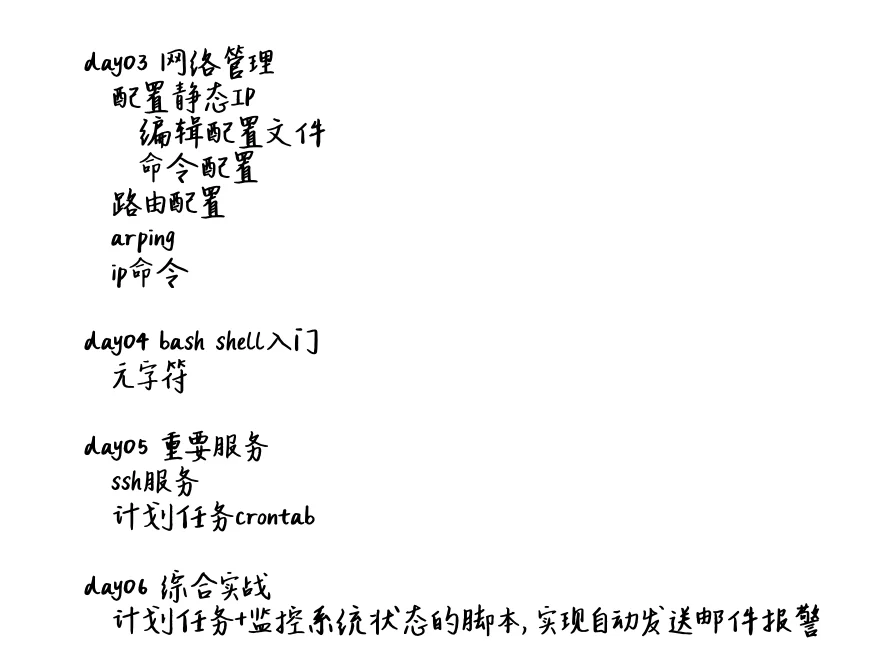 day03 网络管理
配置静态IP
编辑配置文件
命令配置
路由配置
arping
ip命令
day04 bash shell入门
元字符
day05 重要服务
ssh服务
计划任务crontab
day06 综合实战
计划任务+监控系统状态的脚本,实现自动发送邮件报警